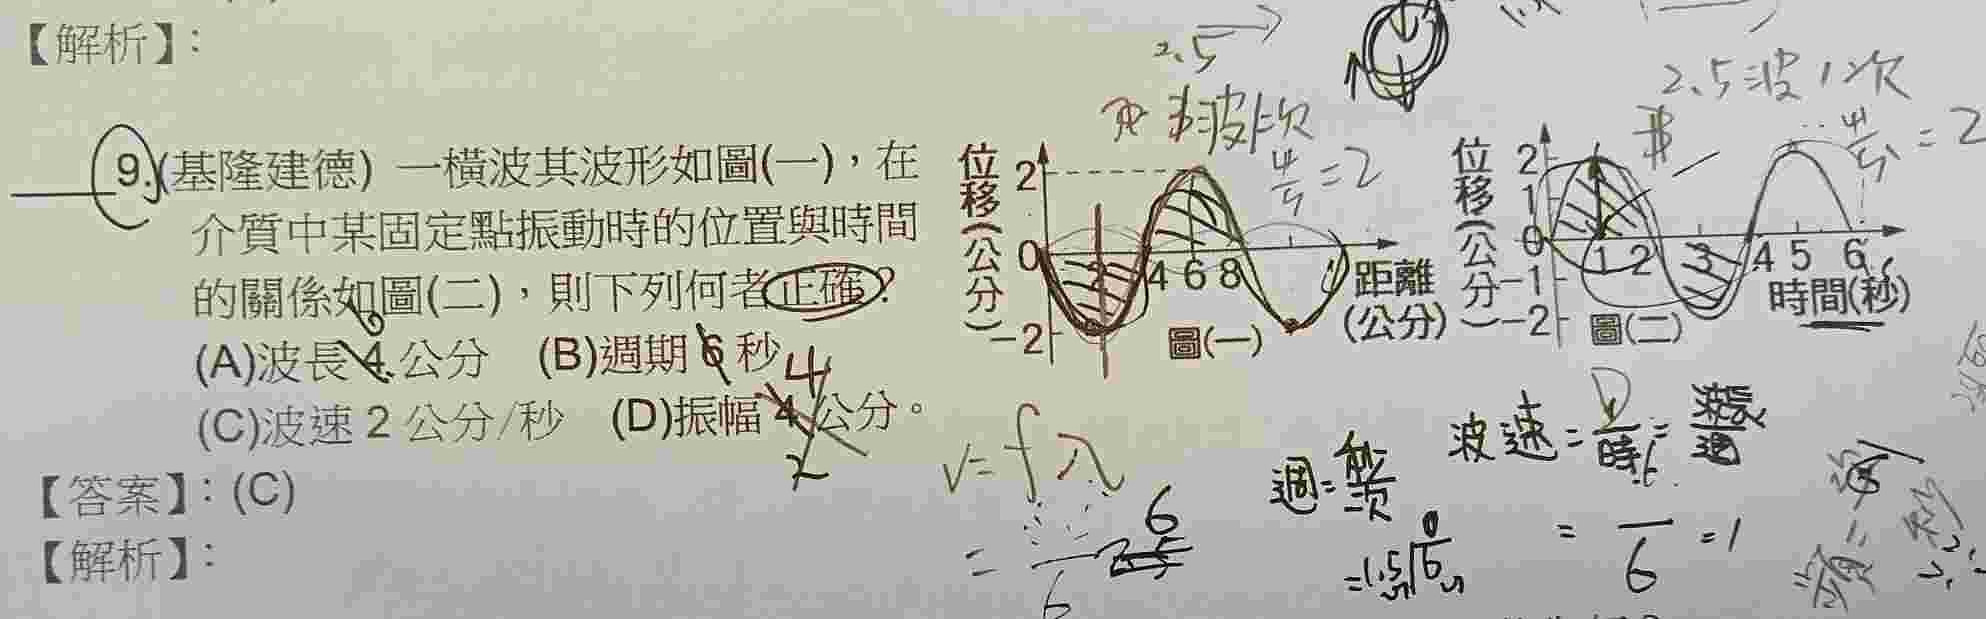 【解析】：
2.5
2.5波1次
波1次
4/ = 2
4/ = 2
9.(基隆建德) 一橫波其波形如圖(一)，在
介質中某固定點振動時的位置與時間
的關係如圖(二)，則下列何者正確？
(A)波長4公分 (B)週期6秒
6
4
(C)波速2公分/秒 (D)振幅4公分。
2
位移(公分)
2
0
-2
2 4 6 8
距離(公分)
圖(一)
位移(公分)
2
1
0
-1
-2
1 2 3 4 5 6
時間(秒)
圖(二)
【答案】：(C)
【解析】：
v=fλ
=
6
6
週=秒/次
=1.5
波速= /時=
= /6 =1